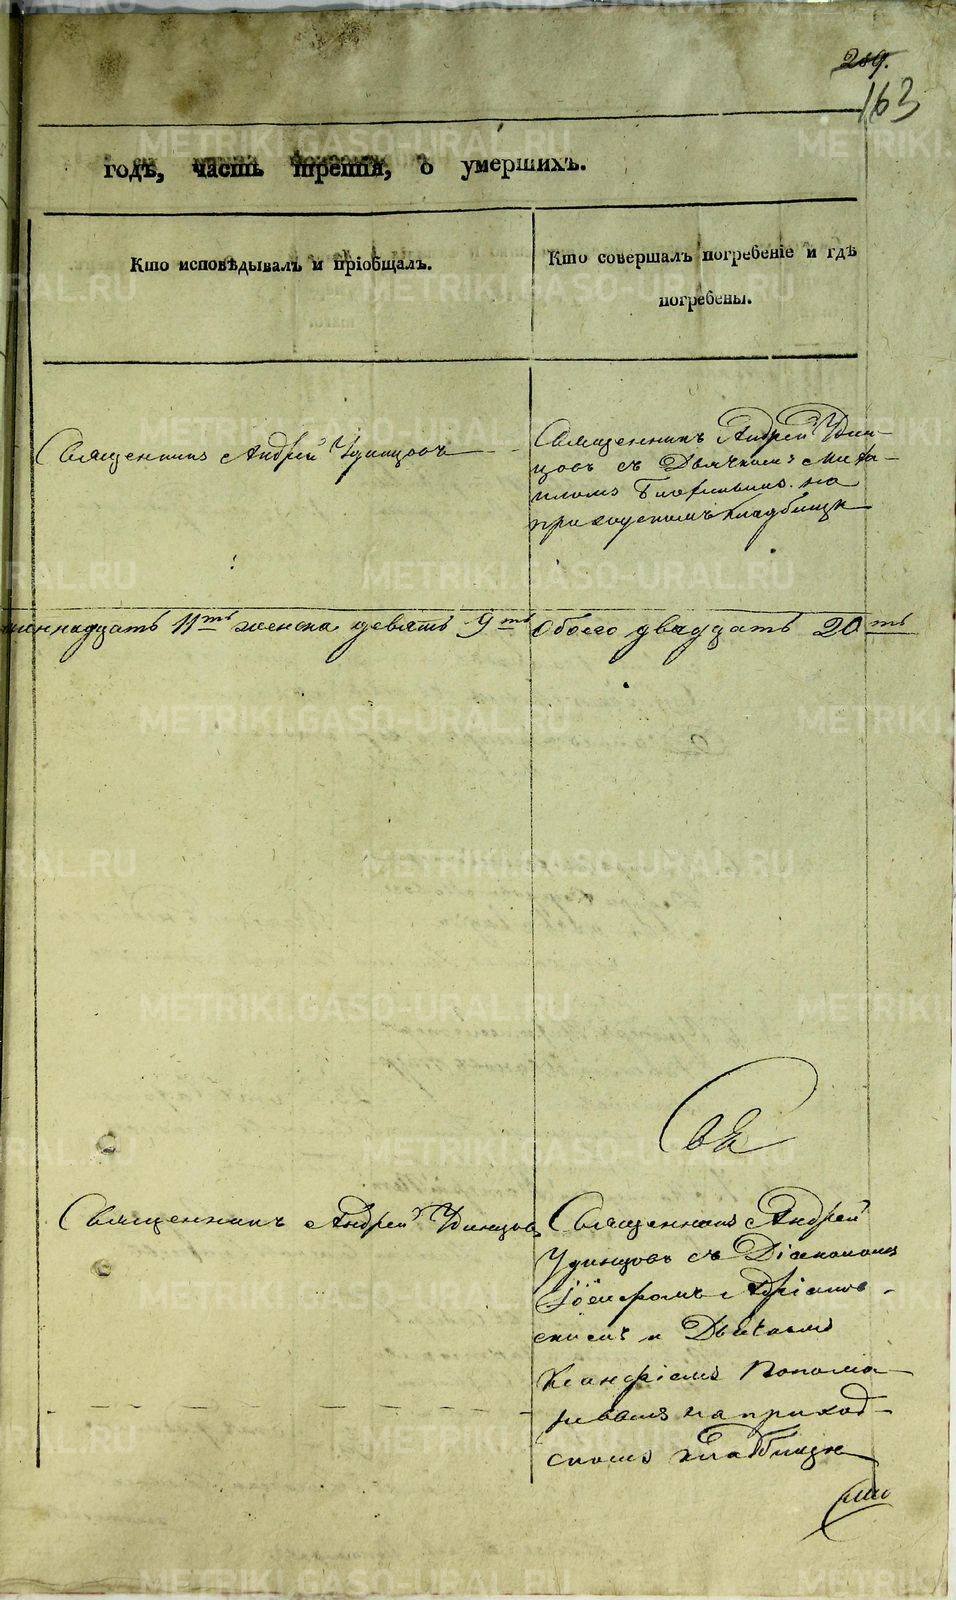 209.
163
годъ, часть третія, о умершихъ.
Кто исповѣдывалъ и пріобщалъ.
Кто совершалъ погребеніе и гдѣ
погребены.
Священникъ Андрей Удинцовъ
Священникъ Андрей Удин-
цовъ съ Дьячкомъ Миха-
иломъ на
приходскомъ кладбищѣ
11ть женска девять 9ть Обоего двадцать 20ть
Священникъ Андрей Удинцовъ
Священникъ Андрей
Удинцовъ съ Діакономъ
Адріанов-
скимъ и Дьячкомъ
Ксанфіемъ Понома-
ревымъ на приход-
скомъ кладбищѣ
METRIKI.GASO-URAL.RU